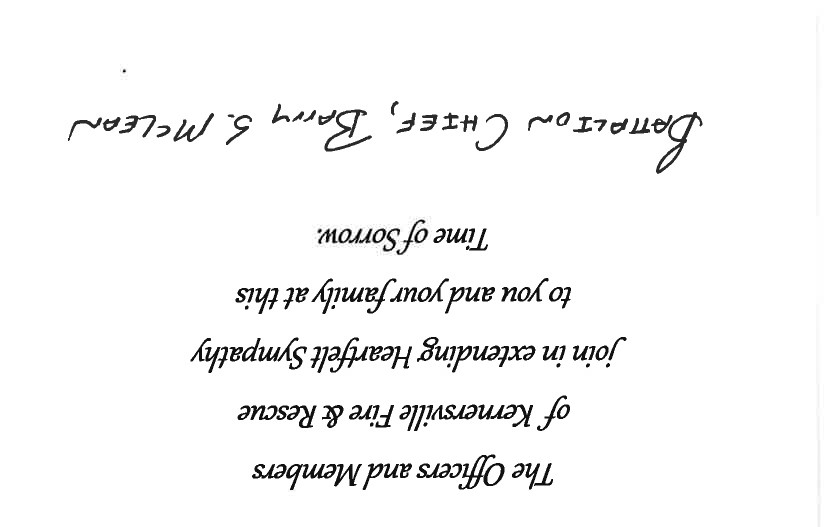 The Officers and Members
of Kernersville Fire & Rescue
join in extending Heartfelt Sympathy
to you and your family at this
Time of Sorrow.
Battalion Chief, Barry S. McLean